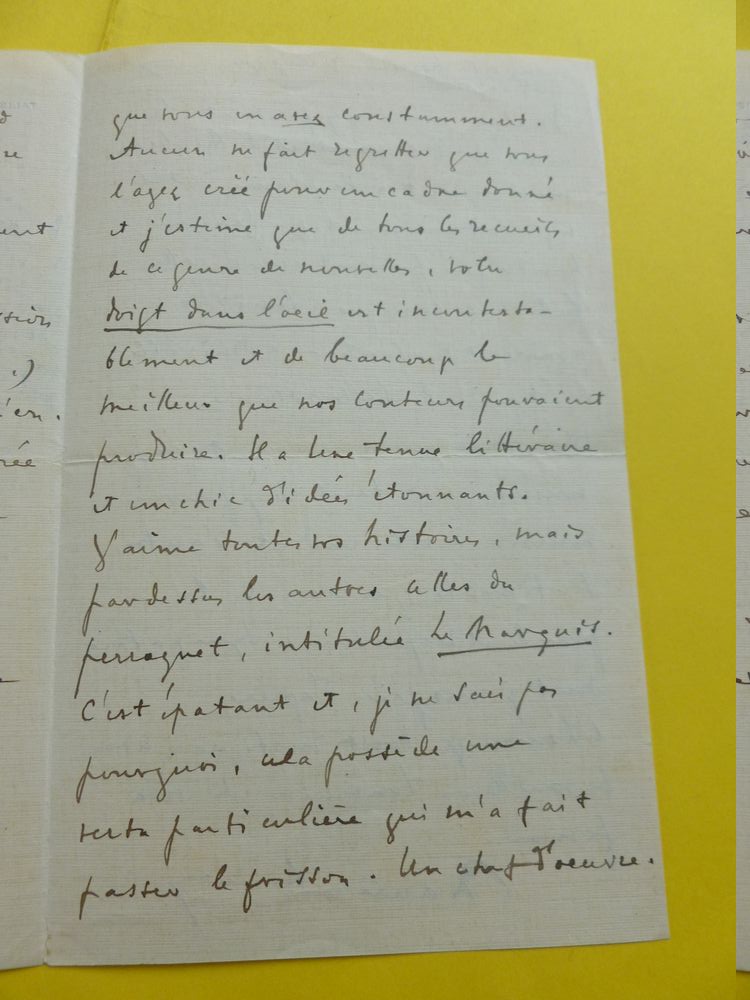 que vous en avez constamment.
Aucun ne fait regretter que vous
l'ayez créé pour un cadre donné
et j'estime que de tous les recueils
de ce genre de nouvelles, votre
doigt dans l'oeil est incontesta-
blement et de beaucoup le
meilleur que nos conteurs pouvaient
produire. Il a une tenue littéraire
et un chic d'idées étonnants.
J'aime toutes vos histoires, mais
pardessus les autres celles du
perroquet, intitulée Le Marquis.
C'est épatant et, je ne sais pas
pourquoi, cela possède une
vertu particulière qui m'a fait
passer le frisson. Un chef d'oeuvre.
ent
ssion
.)
'en.
rée